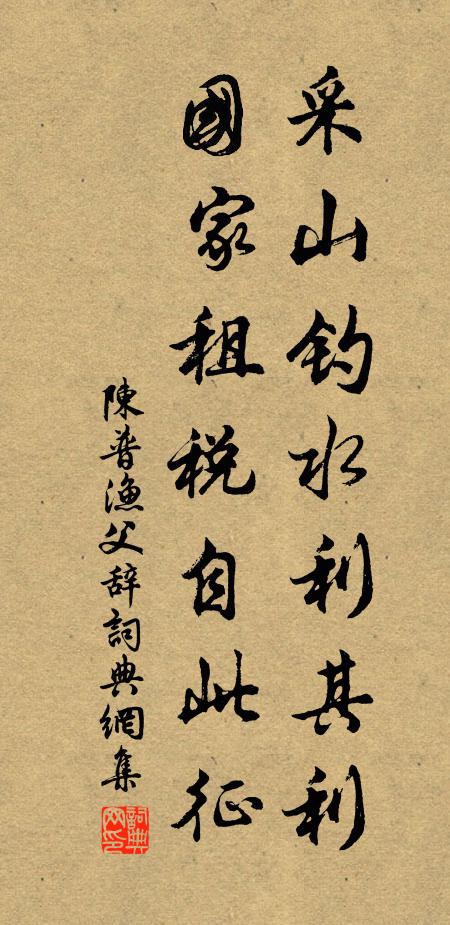 采山钓水利其利
國家租税自此征
陳普漁父辞詞典網集
詞典网印